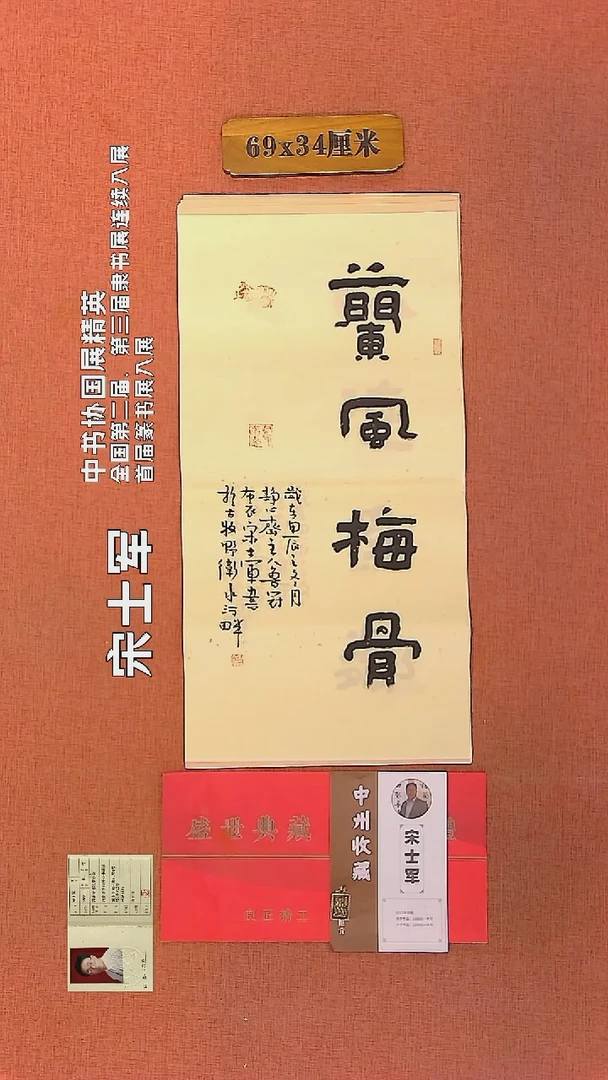 69x34厘米
中书协国展精英
全国第二届、第三届隶书展连续入展
首届篆书展入展
宋士军
蘭風梅骨
歲在甲辰之冬月
静心齋主人魯冠
布衣宋士軍書
於古牧野衛水河畔
盛世典藏
良匠精工
中州收藏
宋士军